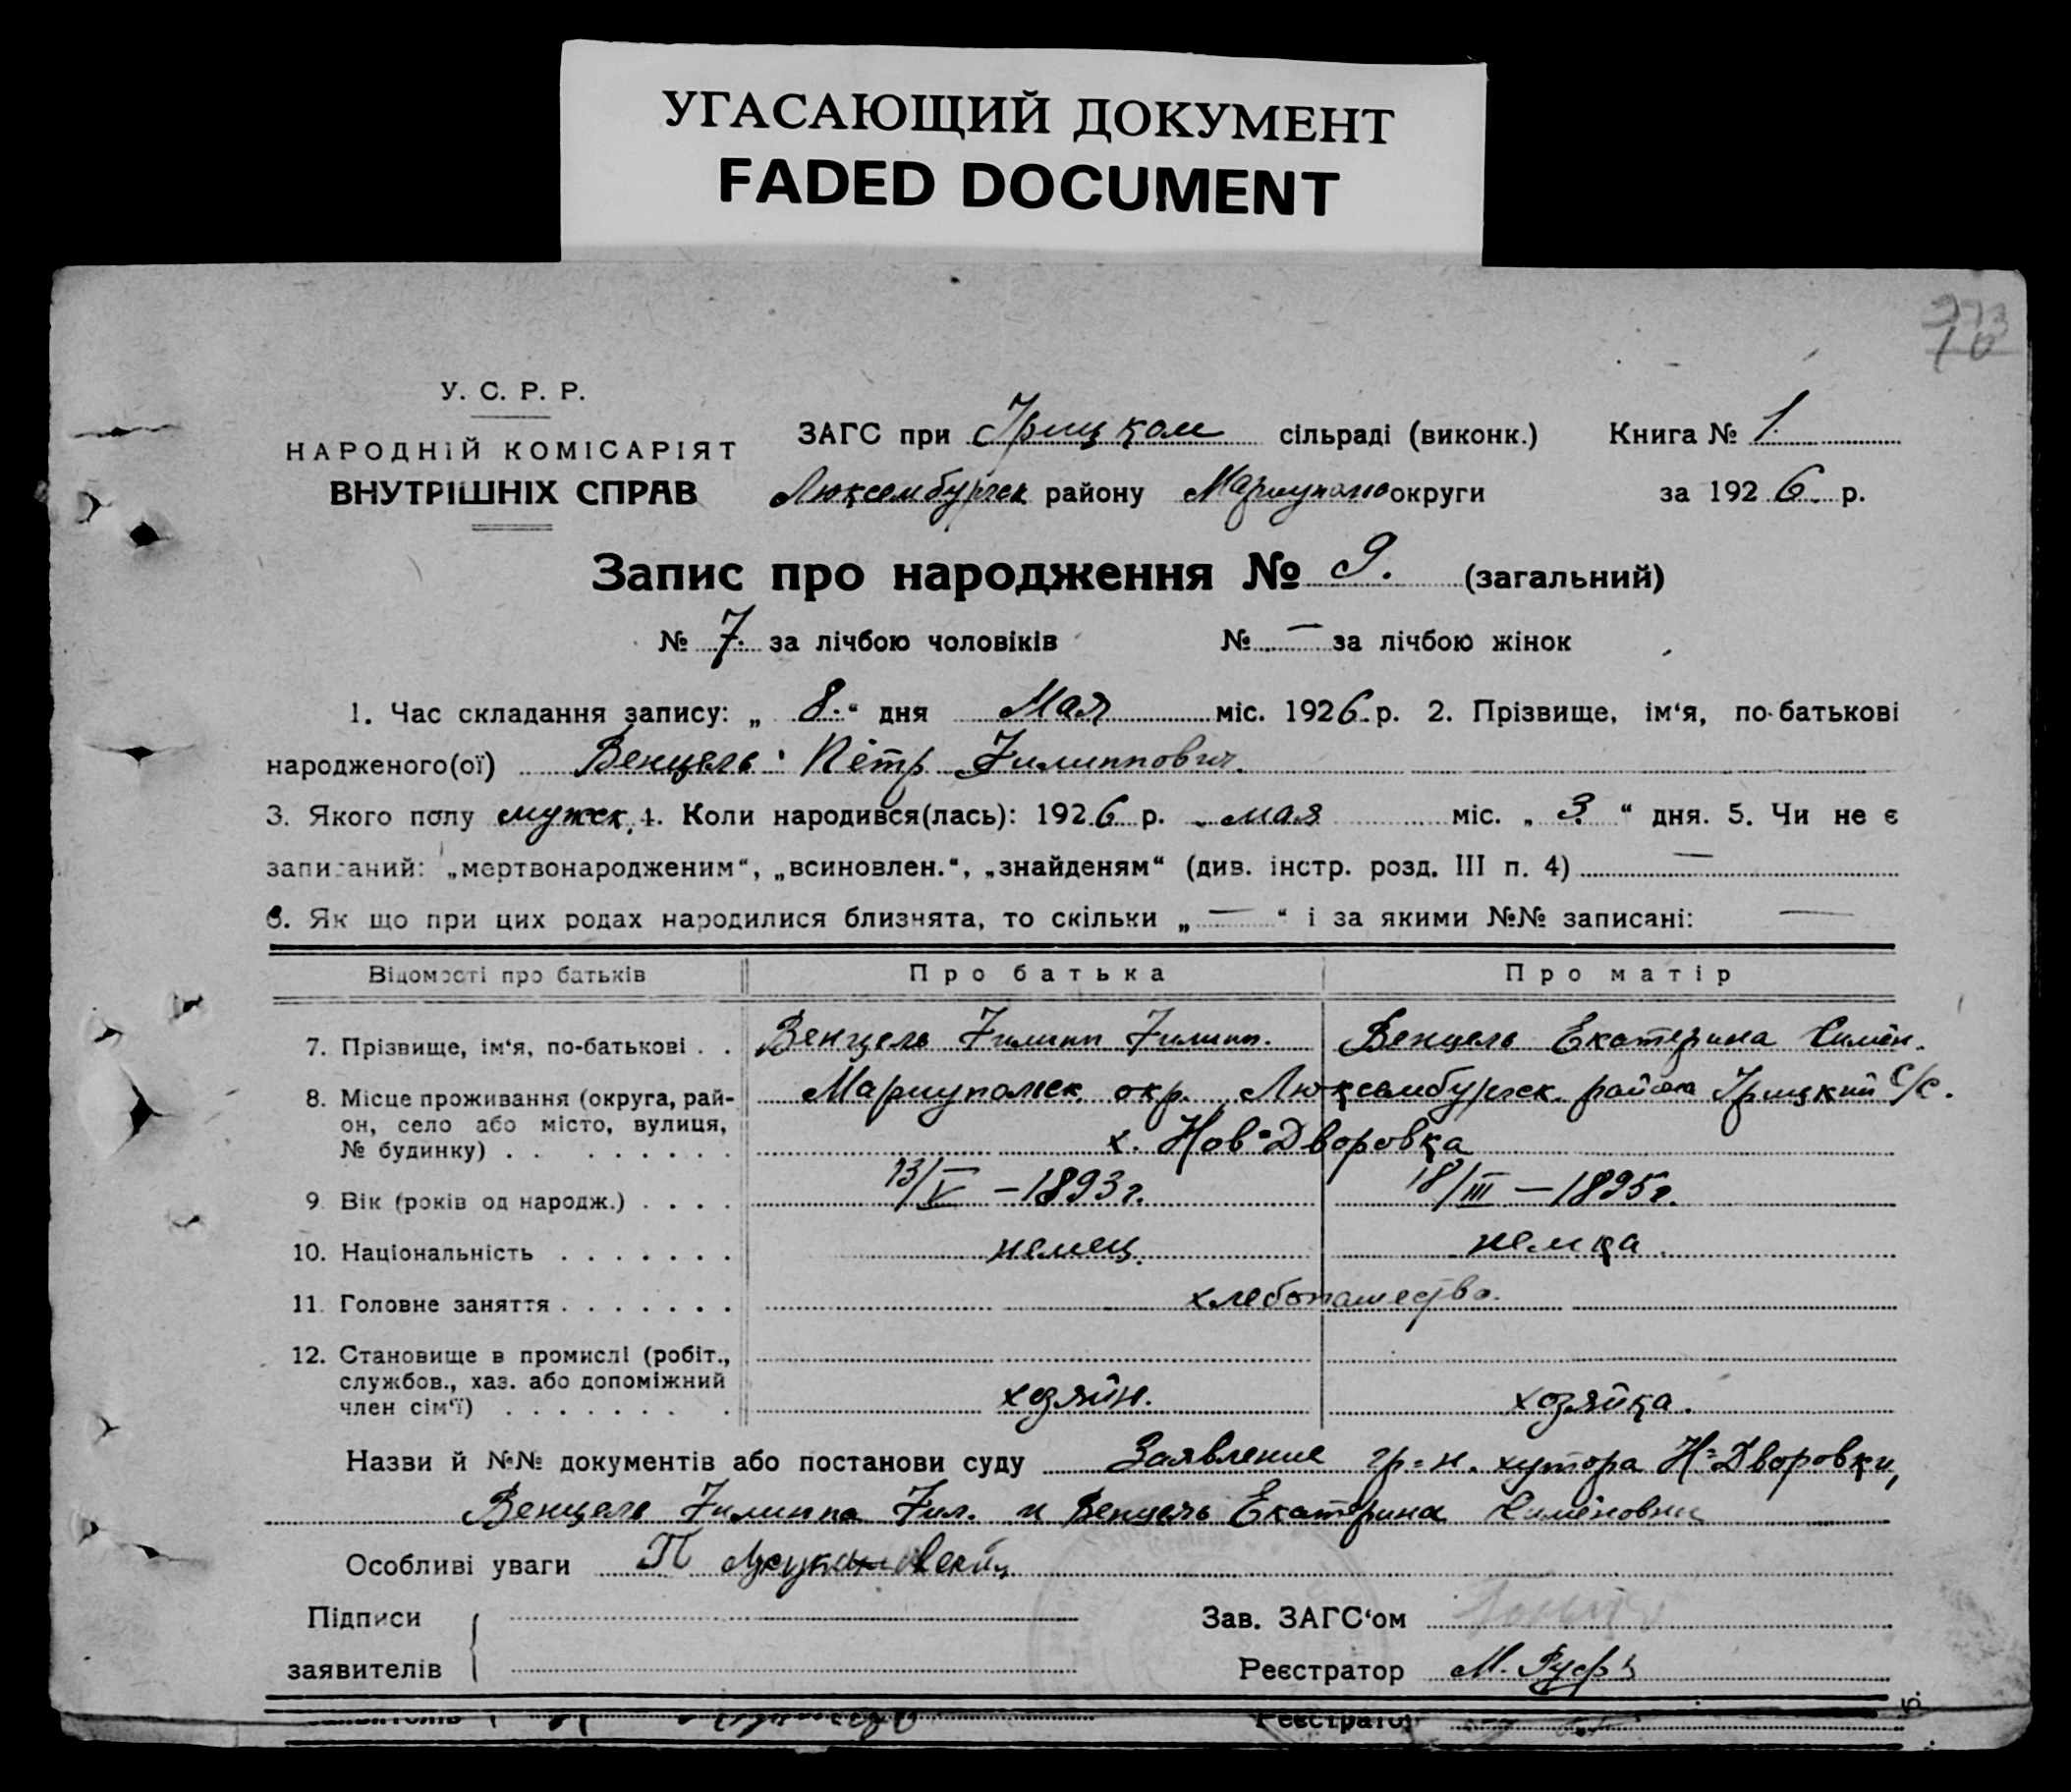 УГАСАЮЩИЙ ДОКУМЕНТ
FADED DOCUMENT
У. С. Р. Р.
НАРОДНІЙ КОМІСАРІЯТ
ВНУТРІШНІХ СПРАВ
ЗАГС при Грицком сільраді (виконк.) Книга № 1
Люксембургск району Мариуполю округи за 1926 р.
Запис про народження № 9. (загальний)
№ 7. за лічбою чоловіків № — за лічбою жінок
1. Час складання запису: „ 8. “ дня Мая міс. 1926 р. 2. Прізвище, ім‘я, по-батькові
народженого(ої) Венцель Пётр Филиппович.
3. Якого полу мужск. 4. Коли народився(лась): 1926 р. мая міс. „ 3 “ дня. 5. Чи не є
записаний: „мертвонародженим“, „всиновлен.“, „знайденям“ (див. інстр. розд. III п. 4) —
6. Як що при цих родах народилися близнята, то скільки „ — “ і за якими №№ записані: —
Відомості про батьків Про батька Про матір
7. Прізвище, ім‘я, по-батькові . . Венцель Филипп Филипп. Венцель Екатерина Симён.
8. Місце проживання (округа, рай-
он, село або місто, вулиця,
№ будинку) . . . . . . . .
Мариупольск. окр. Люксембургск. района Грицкий с/с.
х. Нов=Дворовка
9. Вік (років од народж.) . . . . 13/V – 1893 г. 18/III – 1895 г.
10. Національність . . . . . . . немец. немка.
11. Головне заняття . . . . . . . хлебопашество.
12. Становище в промислі (робіт.,
службов., хаз. або допоміжний
член сім‘ї) . . . . . . . . хозяйн. хозяйка.
Назви й №№ документів або постанови суду Заявление гр=н. хутора Н=Дворовки,
Венцель Филиппа Фил. и Венцель Екатерина Симёновны
Особливі уваги П
Підписи
заявителів
Зав. ЗАГС‘ом
Реєстратор М.
Реєстратор